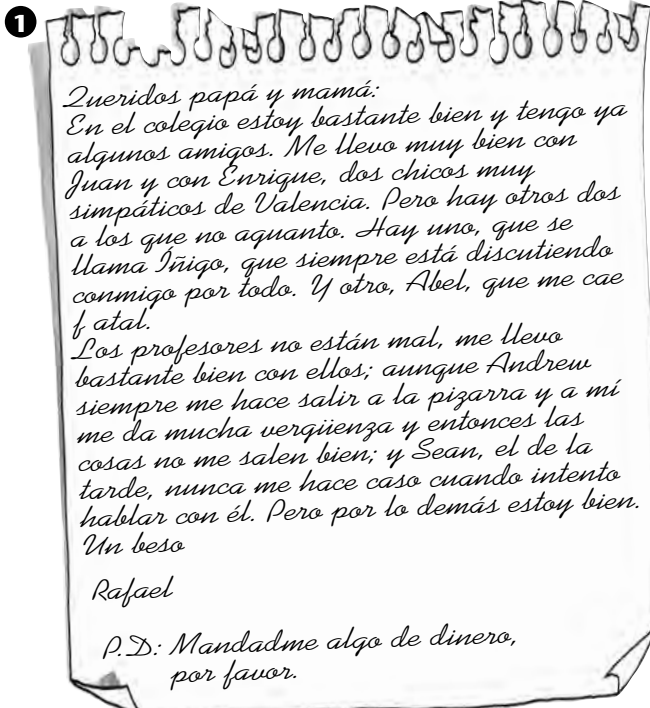 1
Queridos papá y mamá:
En el colegio estoy bastante bien y tengo ya
algunos amigos. Me llevo muy bien con
Juan y con Enrique, dos chicos muy
simpáticos de Valencia. Pero hay otros dos
a los que no aguanto. Hay uno, que se
llama Íñigo, que siempre está discutiendo
conmigo por todo. Y otro, Abel, que me cae
f atal.
Los profesores no están mal, me llevo
bastante bien con ellos; aunque Andrew
siempre me hace salir a la pizarra y a mí
me da mucha vergüenza y entonces las
cosas no me salen bien; y Sean, el de la
tarde, nunca me hace caso cuando intento
hablar con él. Pero por lo demás estoy bien.
Un beso
Rafael
P.D.: Mandadme algo de dinero,
por favor.